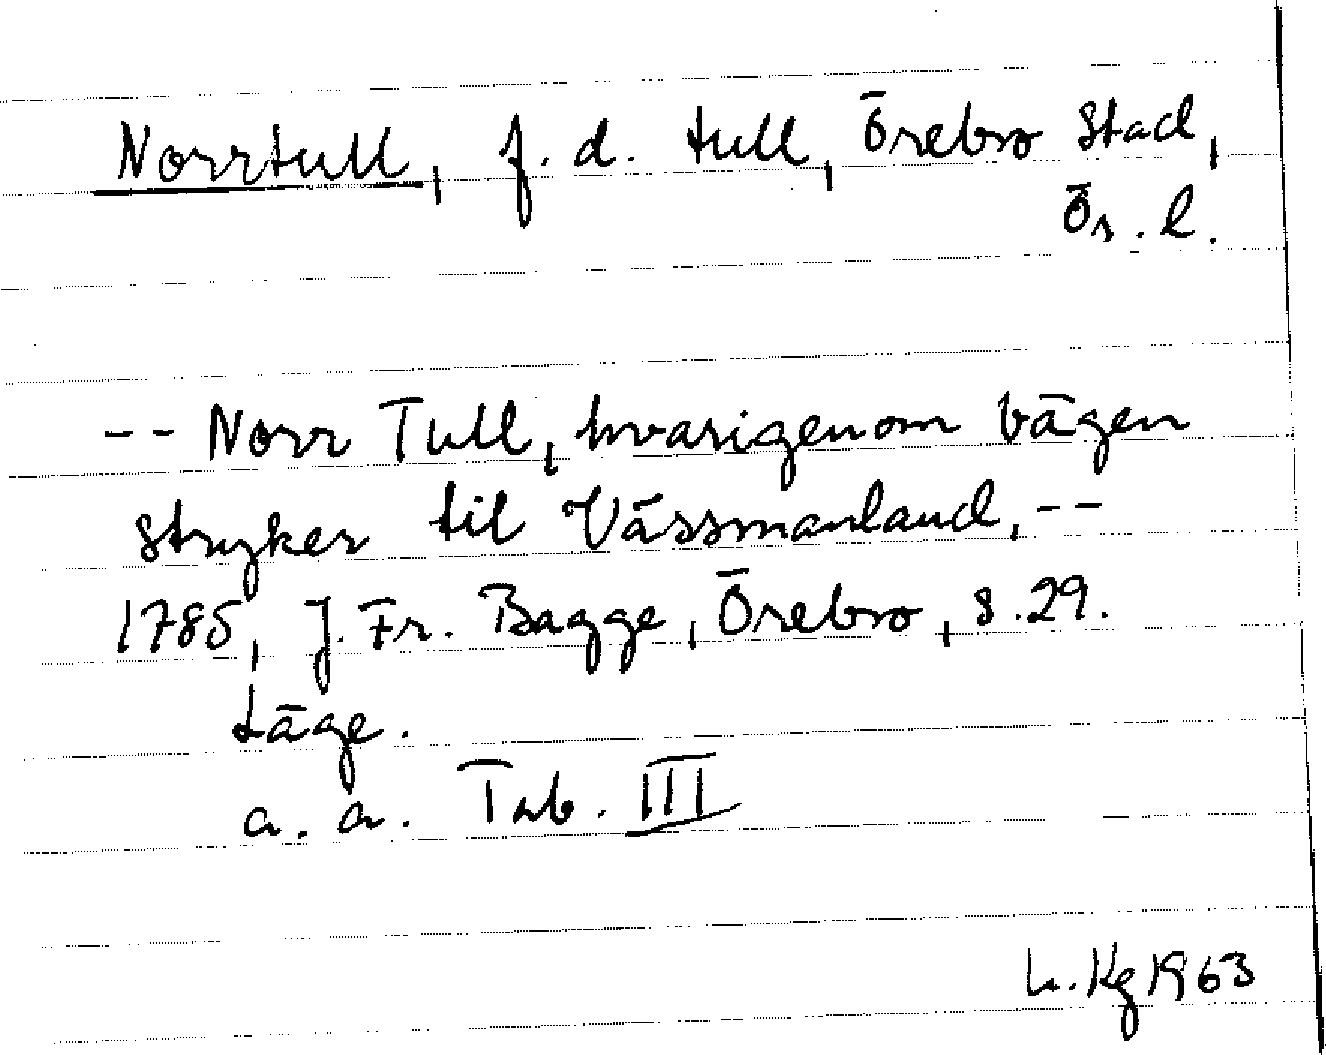 Norrtull, f.d. tull, Örebro stad,
Ös.l.
-- Norr Tull, hvarigenom vägen
stryker til Vässmanland, --
1785, J. Fr. Bagge, Örebro, s. 29.
Läge.
a. a. Tab. III
L. Kg 1963